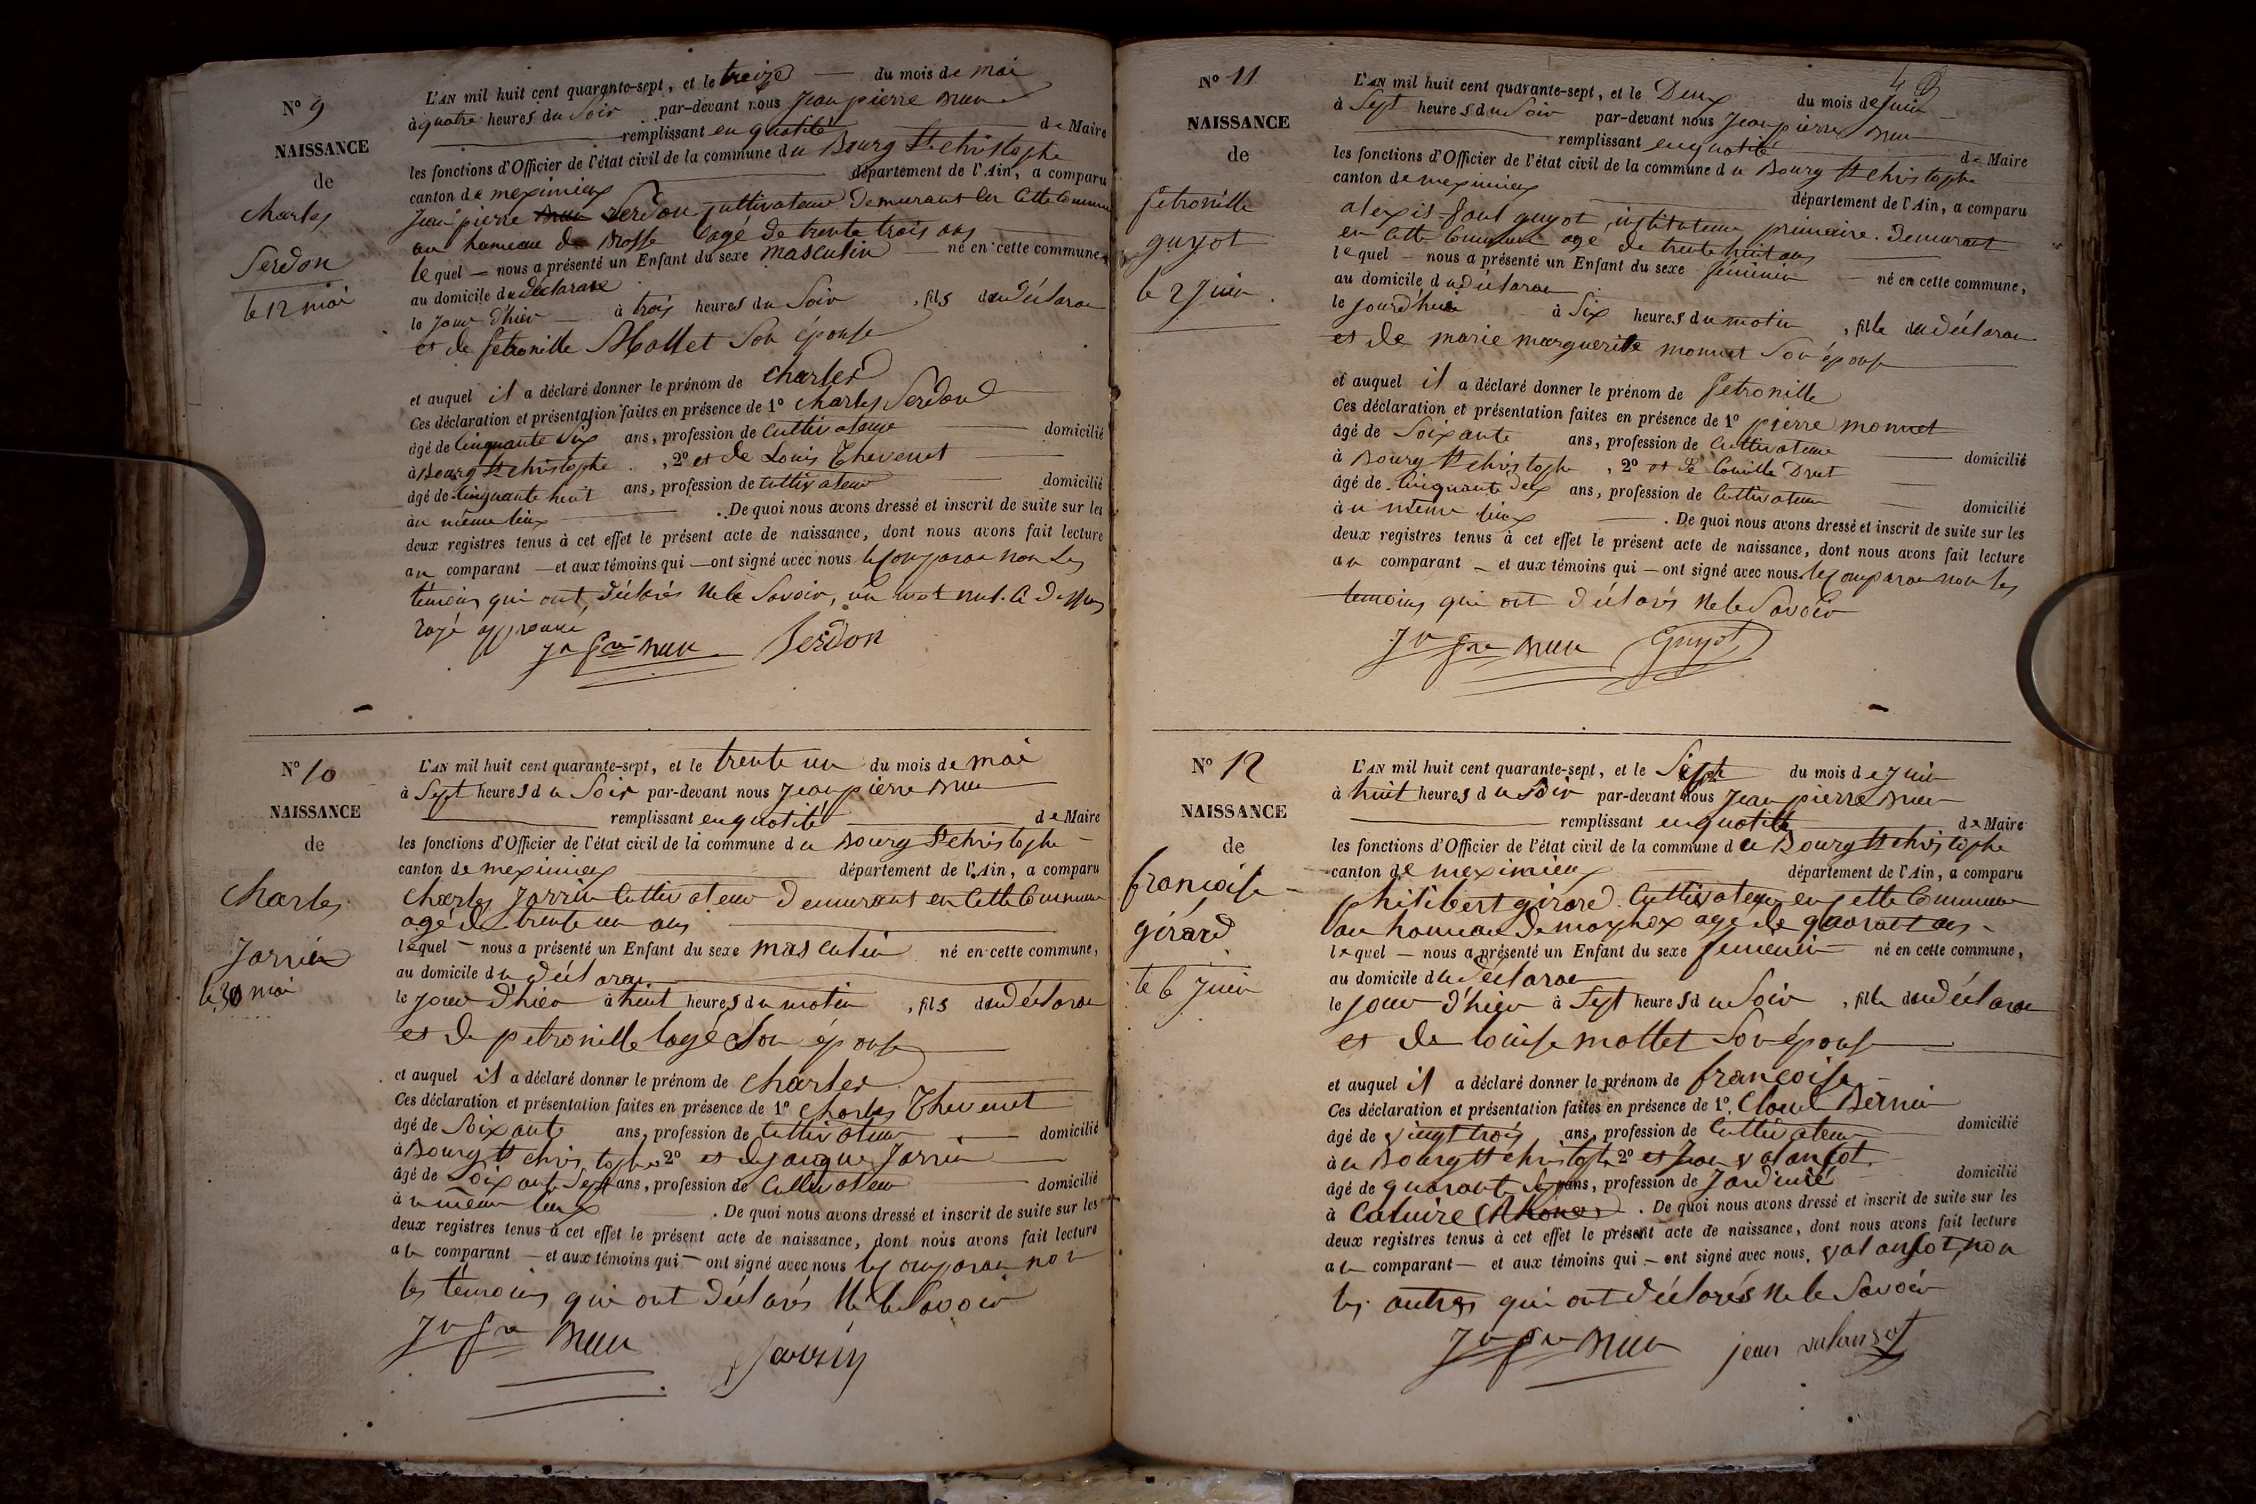 N° 9
NAISSANCE
de
Charles
Serdon
le 12 mai
L'AN mil huit cent quarante-sept, et le treize du mois de mai
à quatre heures du Soir par-devant nous Jean pierre Brun
remplissant en qualité de Maire
les fonctions d'Officier de l'état civil de la commune du Bourg St Christophe
canton de meximieux département de l'Ain, a comparu
Jean pierre Serdon Cultivateur demeurant en Cette Commune
au hameau de Brosse agé de trente trois ans
lequel nous a présenté un Enfant du sexe masculin né en cette commune,
au domicile du déclarant
le jour d'hier à trois heures du Soir, fils dudéclarant
et de petronille Mollet Son épouse
et auquel il a déclaré donner le prénom de Charles
Ces déclaration et présentation faites en présence de 1° Charles Serdon
âgé de Cinquante Six ans, profession de Cultivateur domicilié
à Bourg St Christophe, 2° et de Louis Thevenet
âgé de Cinquante huit ans, profession de Cultivateur domicilié
au même lieux. De quoi nous avons dressé et inscrit de suite sur les
deux registres tenus à cet effet le présent acte de naissance, dont nous avons fait lecture
au comparant et aux témoins qui ont signé avec nous le Comparant non Les
temoins qui ont déclarés ne le Savoir, un mot nul Ci dessus
rayé approuvé
Jn Prre Brun Serdon
N° 10
NAISSANCE
de
Charles
Jarrin
le 30 mai
L'AN mil huit cent quarante-sept, et le trente un du mois de mai
à Sept heures du Soir par-devant nous Jean pierre Brun
remplissant en qualité de Maire
les fonctions d'Officier de l'état civil de la commune du Bourg St Christophe
canton de meximieux département de l'Ain, a comparu
Charles Jarrin Cultivateur demeurant en Cette Commune
agé de trente un ans
lequel nous a présenté un Enfant du sexe masculin né en cette commune,
au domicile du déclarant
le jour d'hier à huit heures du matin, fils dudéclarant
et de petronille Logé Son épouse
et auquel il a déclaré donner le prénom de Charles
Ces déclaration et présentation faites en présence de 1° Charles Thevenet
âgé de Soixante ans, profession de Cultivateur domicilié
à Bourg St Christophe 2° et de jaque Jarrin
âgé de Soixante Sept ans, profession de Cultivateur domicilié
au même lieux. De quoi nous avons dressé et inscrit de suite sur les
deux registres tenus à cet effet le présent acte de naissance, dont nous avons fait lecture
au comparant et aux témoins qui ont signé avec nous le Comparant non
les temoins qui ont déclarés ne le Savoir
Jn Prre Brun Jarrin
N° 11
NAISSANCE
de
Petronille
guyot
le 2 Juin
L'AN mil huit cent quarante-sept, et le Deux du mois de Juin
à Sept heures du Soir par-devant nous Jean pierre Brun
remplissant en qualité de Maire
les fonctions d'Officier de l'état civil de la commune du Bourg St Christophe
canton de meximieux département de l'Ain, a comparu
alexis paul guyot, instituteur primaire. demeurant
en Cette Commune agé de trente huit ans
lequel nous a présenté un Enfant du sexe féminin né en cette commune,
au domicile du déclarant
le jourd'hui à Six heures du matin, fille dudéclarant
et de marie marguerite monnet Son épouse
et auquel il a déclaré donner le prénom de Petronille
Ces déclaration et présentation faites en présence de 1° pierre monnet
âgé de Soixante ans, profession de Cultivateur domicilié
à Bourg St Christophe, 2° et de Camille Drut
âgé de Cinquante deux ans, profession de Cultivateur domicilié
au même lieux. De quoi nous avons dressé et inscrit de suite sur les
deux registres tenus à cet effet le présent acte de naissance, dont nous avons fait lecture
au comparant et aux témoins qui ont signé avec nous. le Comparant non les
temoins qui ont déclarés ne le Savoir
Jn Prre Brun Guyot
N° 12
NAISSANCE
de
françoise
gérard
le 6 Juin
L'AN mil huit cent quarante-sept, et le Sept du mois de Juin
à huit heures du Soir par-devant nous Jean pierre Brun
remplissant en qualité de Maire
les fonctions d'Officier de l'état civil de la commune du Bourg St Christophe
canton de meximieux département de l'Ain, a comparu
philibert girard Cultivateur en Cette Commune
au hameau de agé de quarante ans
lequel nous a présenté un Enfant du sexe femenin né en cette commune,
au domicile du déclarant
le jour d'hier à Sept heures du Soir, fille dudéclarant
et de Louise mollet Son épouse
et auquel il a déclaré donner le prénom de françoise
Ces déclaration et présentation faites en présence de 1° Claude Bernin
âgé de vingt trois ans, profession de Cultivateur domicilié
au Bourg St Christophe 2° et jean valansot
âgé de quarante ans, profession de Jardinié domicilié
à Caluire (Rhone). De quoi nous avons dressé et inscrit de suite sur les
deux registres tenus à cet effet le présent acte de naissance, dont nous avons fait lecture
au comparant et aux témoins qui ont signé avec nous. valansot, non
les autres qui ont déclarés ne le Savoir
Jn Prre Brun jean valansot